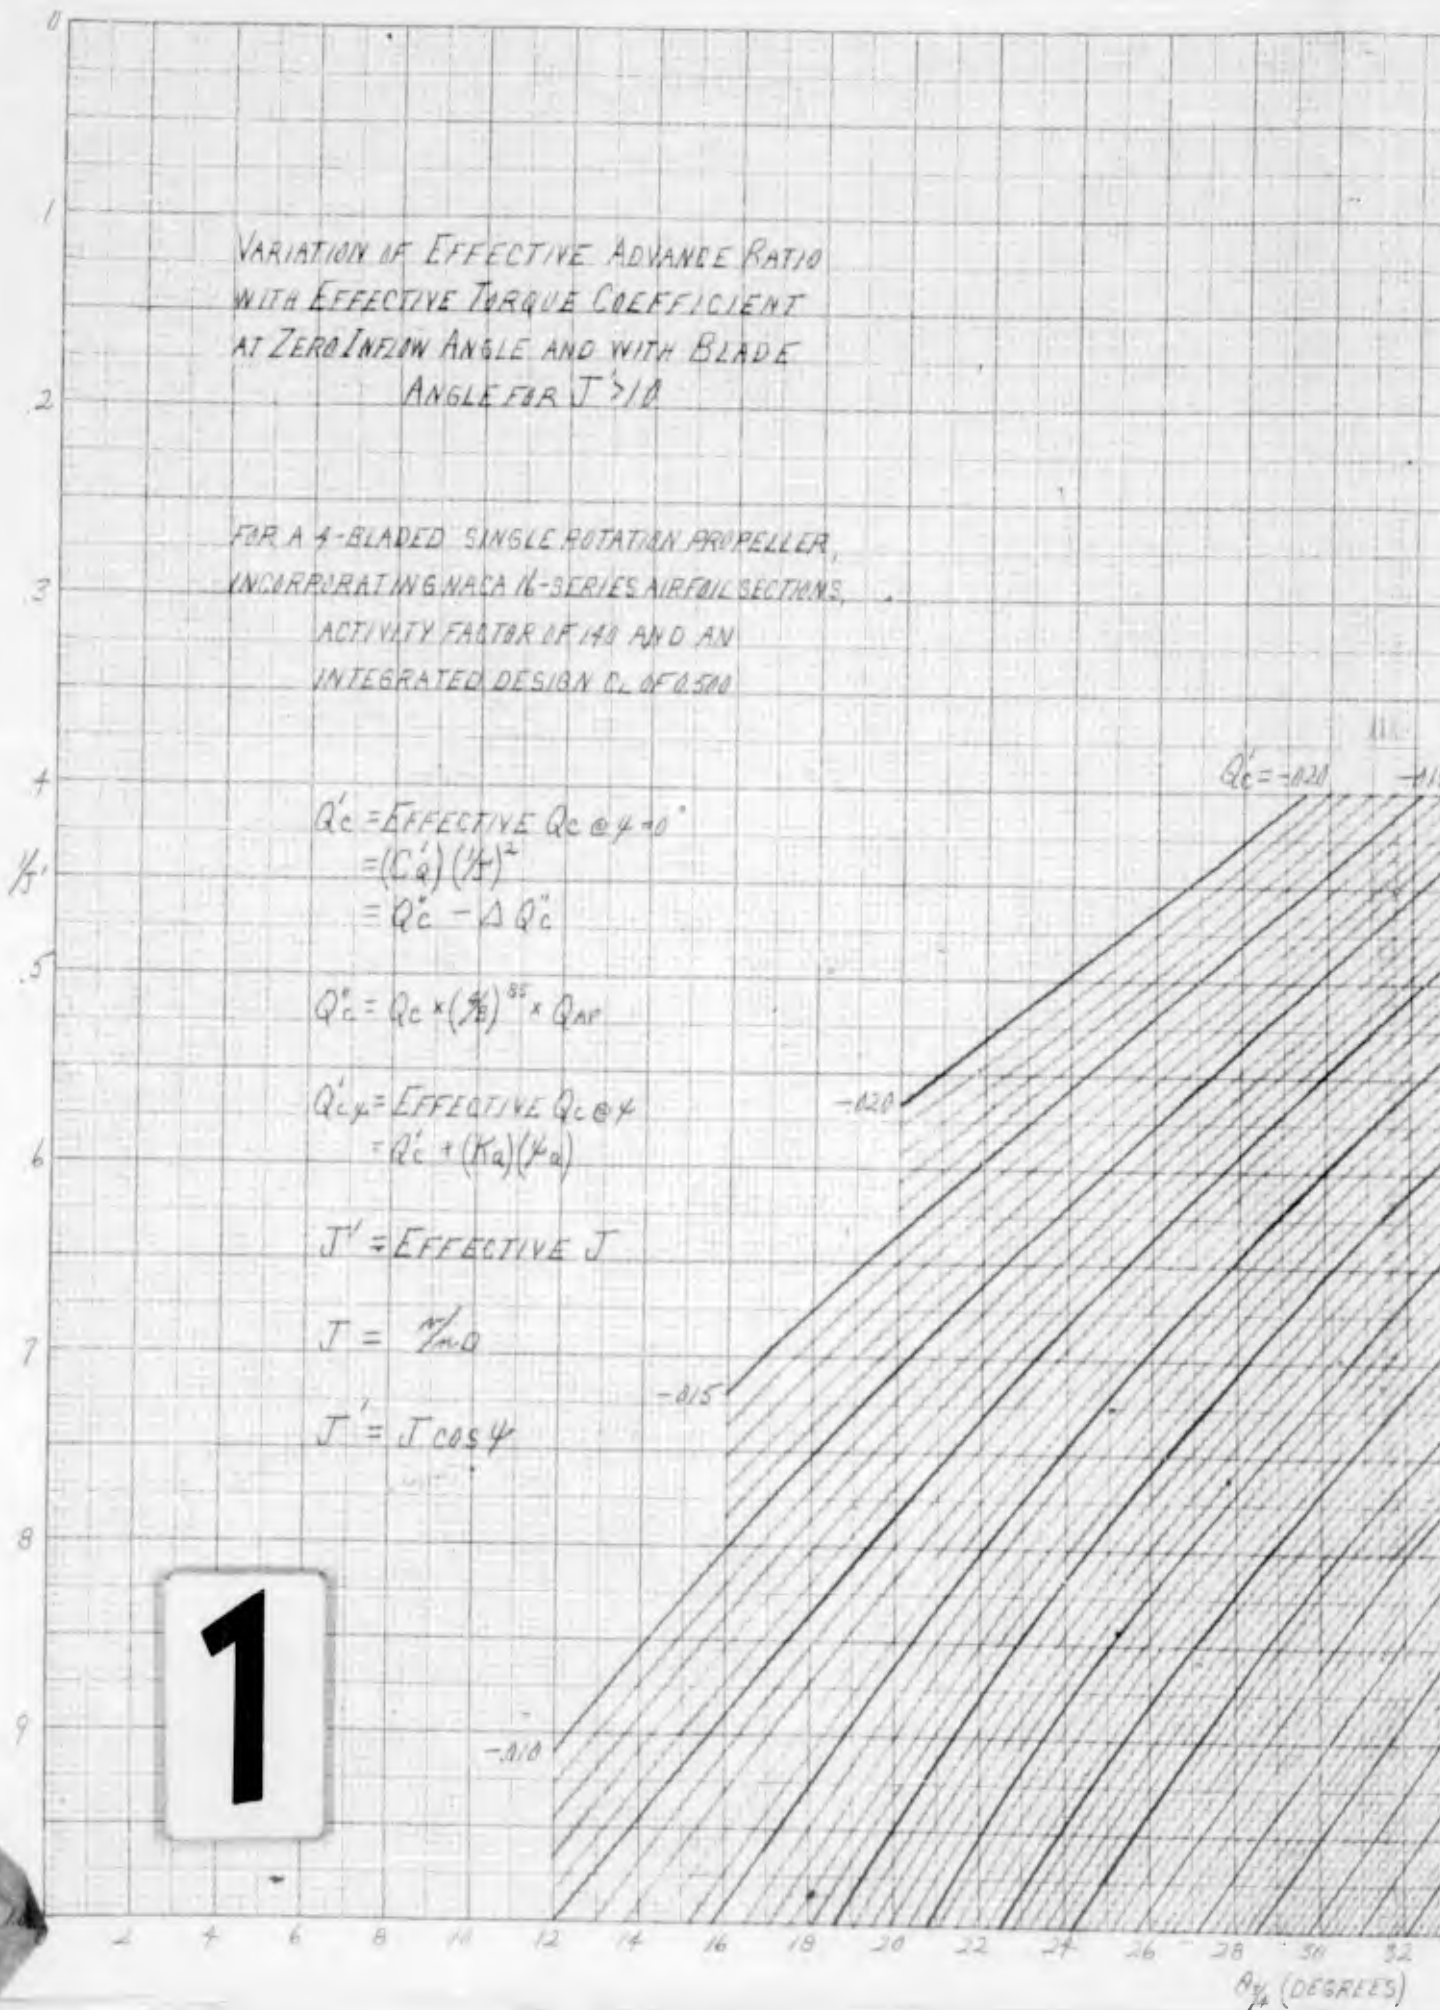 0
.1
VARIATION OF EFFECTIVE ADVANCE RATIO
WITH EFFECTIVE TORQUE COEFFICIENT
AT ZERO INFLOW ANGLE AND WITH BLADE
ANGLE FOR J'>1.0
.2
FOR A 4-BLADED SINGLE ROTATION PROPELLER,
INCORPORATING NACA 16-SERIES AIRFOIL SECTIONS,
.3
ACTIVITY FACTOR OF 140 AND AN
INTEGRATED DESIGN CL OF 0.500
.4
Q'c = -.020
Q'c = EFFECTIVE Qc @ ψ=0°
= (C'Q) (1/J)²
1/J'
= Q"c - Δ Q"c
.5
Q"c = Qc × (4/B)^.85 × QAF
-.020
Q'cψ = EFFECTIVE Qc @ ψ
= Q'c + (KQ)(ψQ)
.6
J' = EFFECTIVE J
J = V/nD
.7
-.015
J' = J COS ψ
.8
1
.9
-.010
2 4 6 8 10 12 14 16 18 20 22 24 26 28 30 32
θ3/4 (DEGREES)